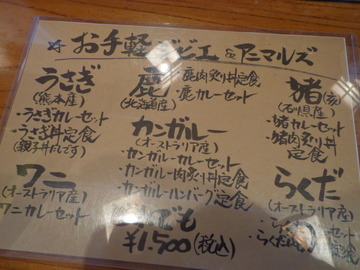 お手軽ジビエ&アニマルズ
うさぎ
(熊本産)
・うさぎカレーセット
・うさぎ丼定食
(親子丼だしです)
鹿
(北海道産)
・鹿肉炙り丼定食
・鹿カレーセット
猪(亥)
(石川県産)
・猪カレーセット
・猪肉炙り丼
定食
カンガルー
(オーストラリア産)
・カンガルーカレーセット
・カンガルー肉炙り丼定食
・カンガルーハンバーグ定食
ワニ
(オーストラリア産)
ワニカレーセット
らくだ
(オーストラリア産)
¥1,500(税込)